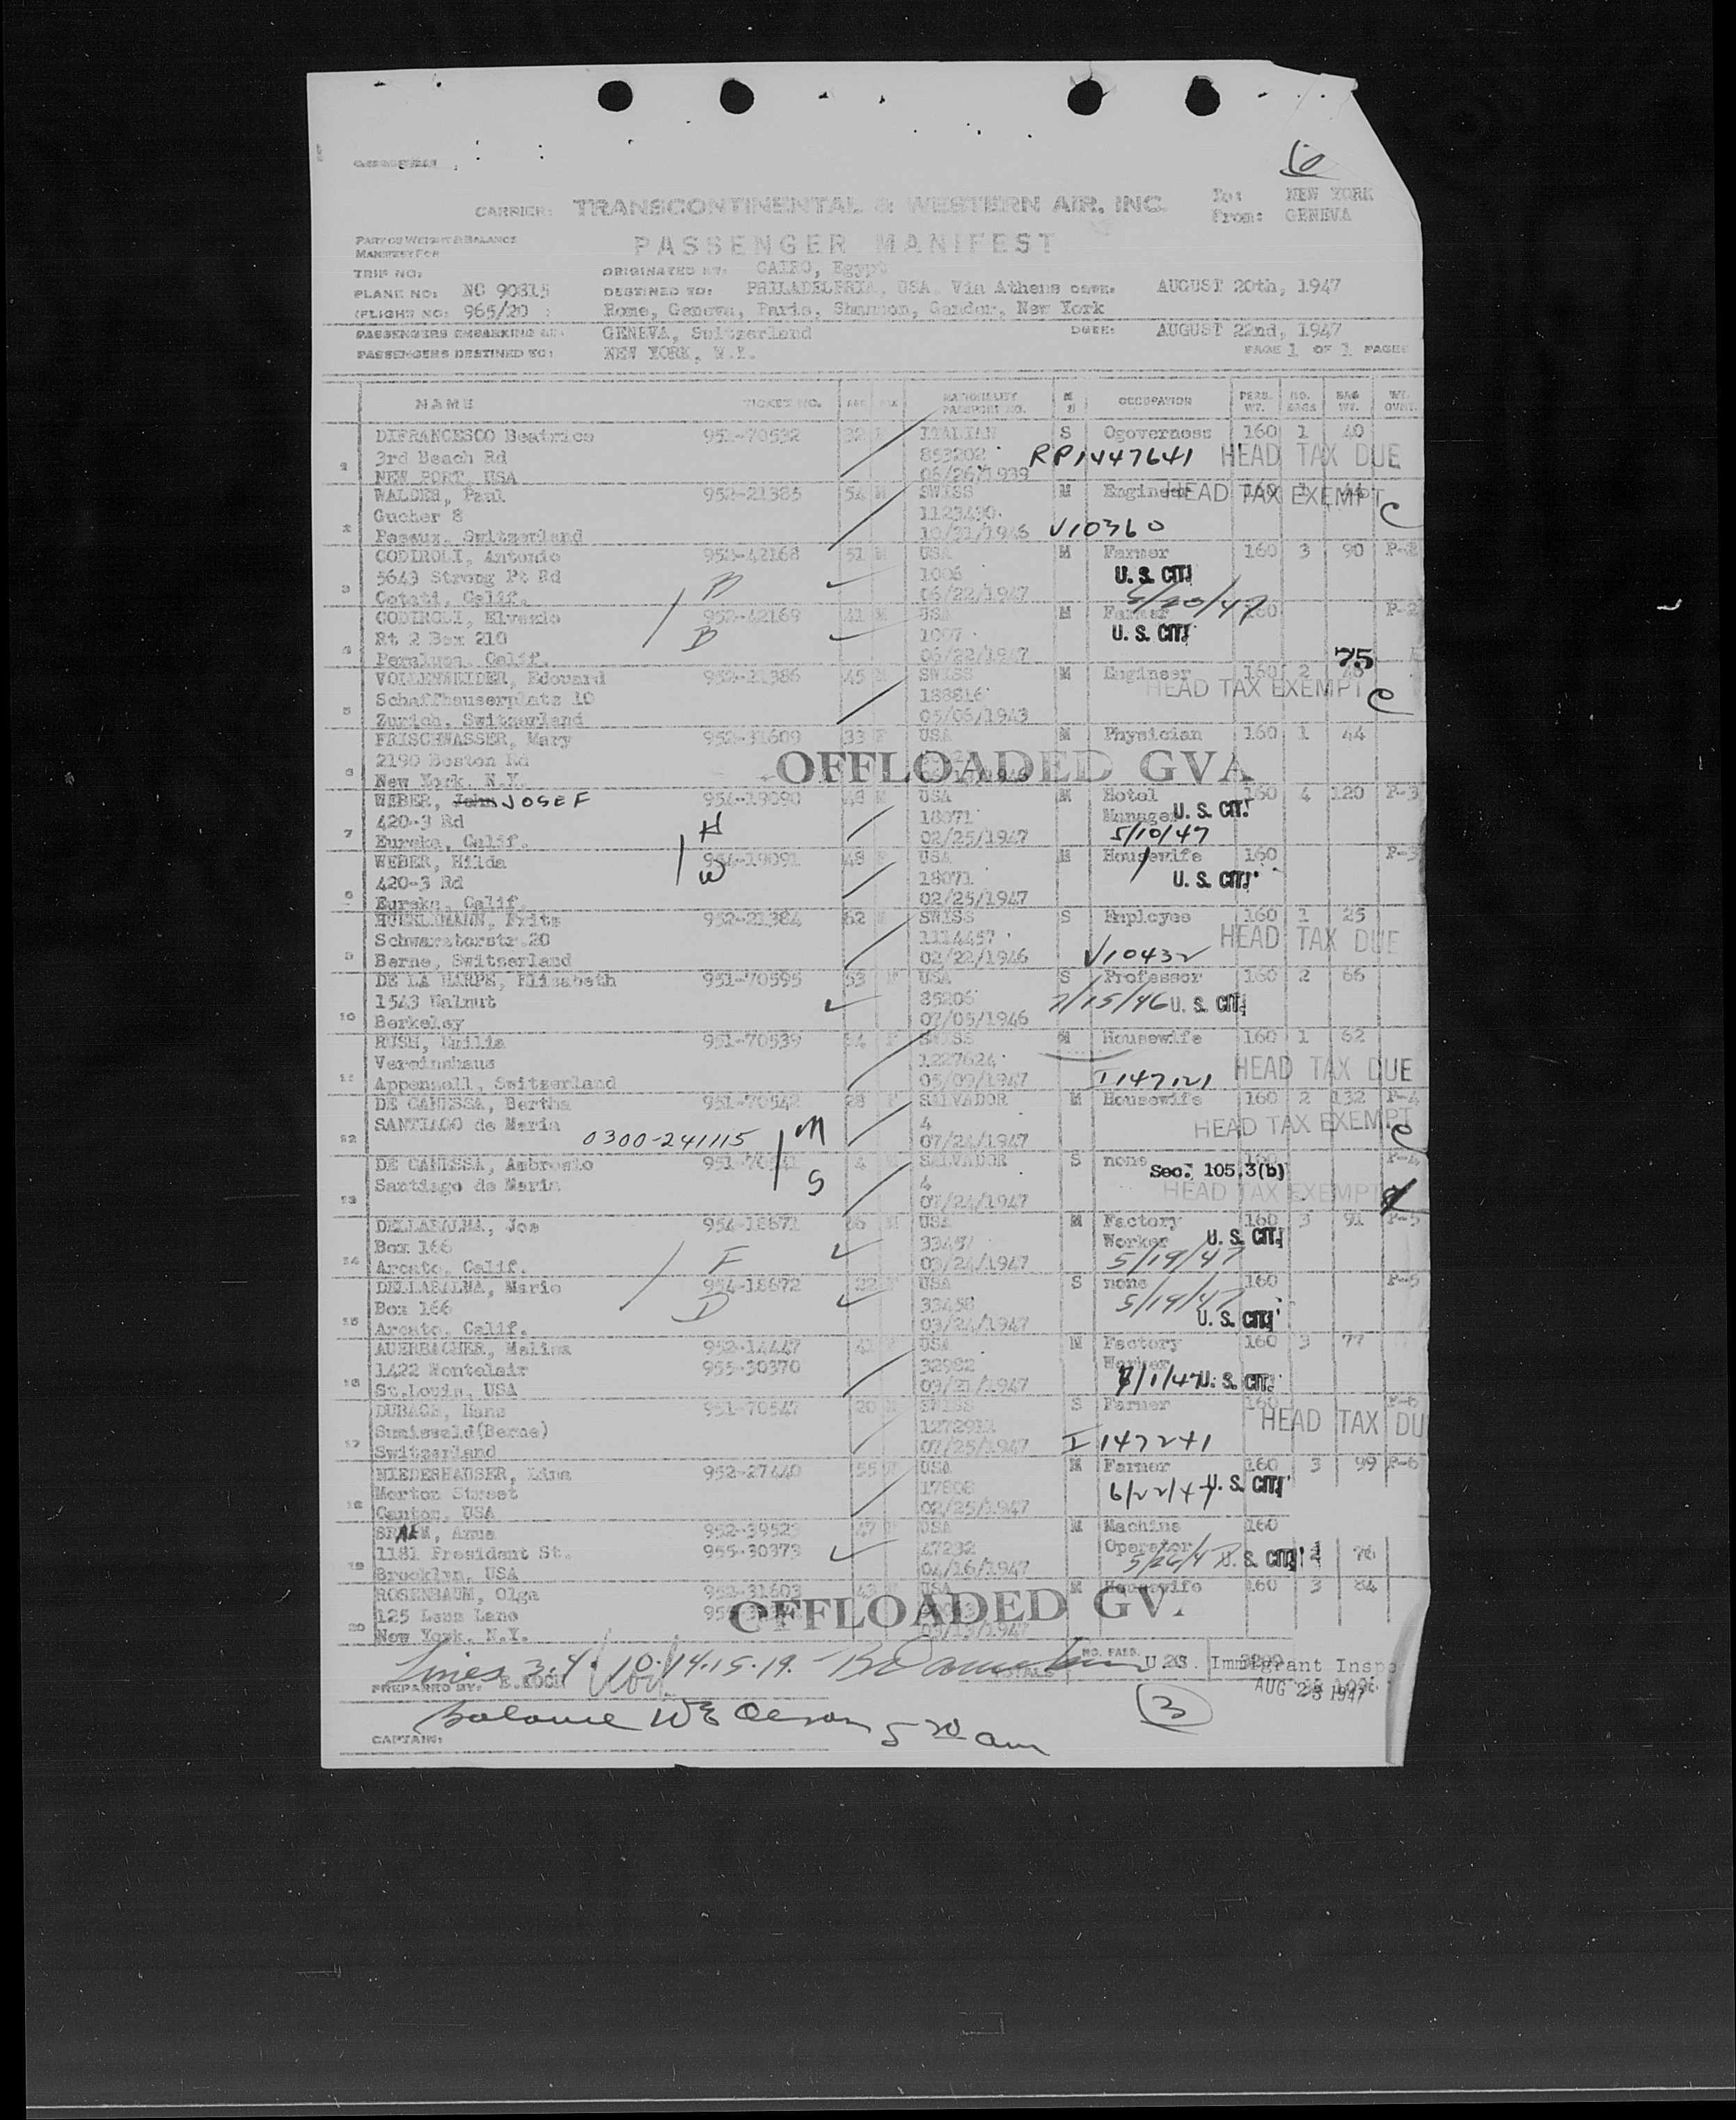 6
To: NEW YORK
CARRIER: TRANSCONTINENTAL & WESTERN AIR, INC. From: GENEVA
PART OF WEIGHT & BALANCE
MANIFEST FOR
PASSENGER MANIFEST
TRIP NO: ORIGINATED BY: CAIRO, Egypt
PLANE NO: NC 90815 DESTINED TO: PHILADELPHIA, USA Via Athens DEPT. AUGUST 20th, 1947
(FLIGHT NO: 965/20 ) Rome, Geneva, Paris, Shannon, Gander, New York
PASSENGERS EMBARKING AT: GENEVA, Switzerland DUE: AUGUST 22nd, 1947
PASSENGERS DESTINED TO: NEW YORK, N.Y. PAGE 1 OF 1 PAGES
NAME TICKET NO. AGE SEX NATIONALITY PASSPORT NO. M S OCCUPATION PERS. WT. NO. BAGS BAG WT.
DIFRANCESCO Beatrice 951-70532 32 ITALIAN S Ogoverness 160 1 40
3rd Beach Rd 853202 RP1447641 HEAD TAX DUE
1 NEW PORT, USA 06/26/1939
WALDER, Paul 952-21385 54 M SWISS M Engineer HEAD TAX EXEMPT C
Gucher 8 1123430
2 Peseux, Switzerland 10/31/1946 V10360
CODIROLI, Antonio 952-42168 51 M USA M Farmer 160 3 90 P-2
5643 Strong Pt Rd B 1006 U. S. CIT.
3 Cotati, Calif. 06/22/1947 5/20/47
CODIROLI, Elvezio 952-42169 41 M USA M Farmer 160 P-2
Rt 2 Box 210 B 1007 U. S. CIT.
4 Peraluma, Calif. 06/22/1947 75
VOLLENWEIDER, Edouard 952-21386 45 M SWISS M Engineer 160 2
Schaffhauserplatz 10 188816 HEAD TAX EXEMPT C
5 Zurich, Switzerland 05/06/1943
FRISCHWASSER, Mary 952-31609 33 F USA M Physician 160 1 44
2190 Boston Rd OFFLOADED GVA
6 New York, N.Y.
WEBER, John JOSEF 954-19090 48 M USA M Hotel 160 4 120 P-3
420-3 Rd H 18071 Manager U. S. CIT.
7 Eureka, Calif. 02/25/1947 5/10/47
WEBER, Hilda 954-19091 48 F USA M Housewife 160 P-3
420-3 Rd W 18071 U. S. CIT.
8 Eureka, Calif. 02/25/1947
Fritz 952-21384 62 M SWISS S Employee 160 1 25
Schwarztorstr.20 1114457 HEAD TAX DUE
9 Berne, Switzerland 02/22/1946 V10432
DE LA HARPE, Elisabeth 951-70595 53 F USA S Professor 160 2 66
1543 Walnut 85206 7/15/46 U. S. CIT.
10 Berkeley 07/05/1946
RUSH, Emilia 951-70539 54 F SWISS M Housewife 160 1 62
Vereinshaus 1227624 HEAD TAX DUE
11 Appenzell, Switzerland 05/09/1947 I147121
DE CANESSA, Bertha 951-70542 28 F SALVADOR M Housewife 160 2 132 P-4
SANTIAGO de Maria 0300-241115 M 4 HEAD TAX EXEMPT C
12 07/24/1947
DE CANESSA, Ambrosio 4 SALVADOR S none 160 P-4
Santiago de Maria S 4 Sec. 105.3(b) HEAD TAX EXEMPT
13 07/24/1947
DELLABALMA, Joe 954-18671 M USA M Factory 160 3 91 P-5
Box 166 F 33457 Worker U. S. CIT.
14 Arcato, Calif. 03/24/1947 5/19/47
DELLABALMA, Marie 954-18672 22 F USA S none 160 P-5
Box 166 D 33458 5/19/47
15 Arcato, Calif. 03/24/1947 U. S. CIT.
AUERBACHER, Melina 952-14447 41 F USA M Factory 160 3 77
1422 Montclair 955-30370 32982 Worker
16 St.Louis, USA 03/21/1947 8/1/47 U. S. CIT.
DUBACH, Hans 951-70547 20 M SWISS S Farmer 160 P-6
Sumiswald(Berne) HEAD TAX DU
17 Switzerland 07/25/1947 I 147241
NIEDERHAUSER, Lina 952-27440 55 USA M Farmer 160 3 99 P-6
Morton Street 17808 6/22/47 U. S. CIT.
18 Canton, USA 02/25/1947
Anna 952-39523 47 F USA M Machine 160
1181 President St. 955-30373 47232 Operator 5/26/47 U. S. CIT. 76
19 Brooklyn, USA 04/16/1947
ROSENBAUM, Olga 952-31603 43 F USA M Housewife 160 3 84
125 Lane OFFLOADED GV
20 New York, N.Y. 1947
Lines 3.4. 10.14.15.19. NO. PASS. 20 U.S. Immigrant Inspe
PREPARED BY: E.KOCH TOTALS AUG 23 1947
Balance 5 20 am 3
CAPTAIN: